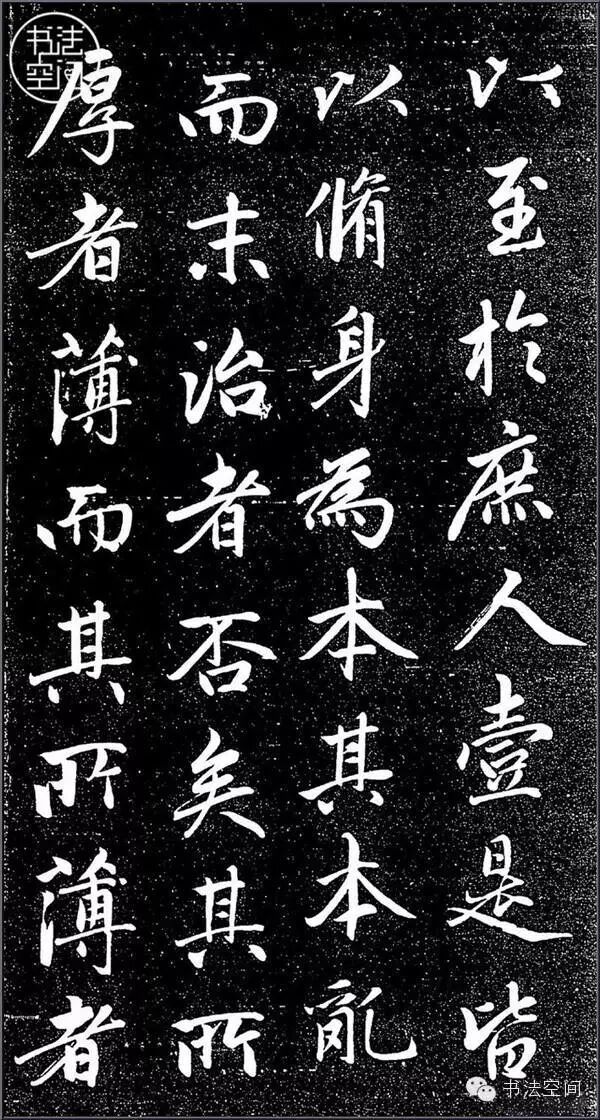 以至於庶人壹是皆
以脩身為本其本亂
而末治者否矣其所
厚者薄而其所薄者
书法空间
书法空间